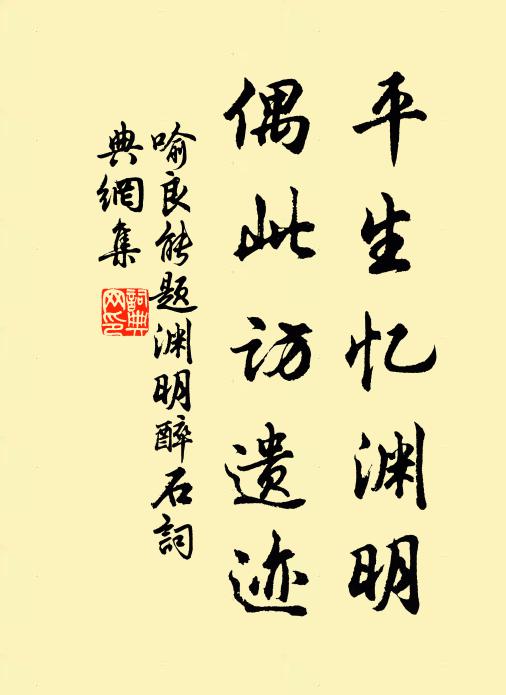 平生忆渊明
偶此访遗迹
喻良能题渊明醉石詞
典網集
詞典
网印